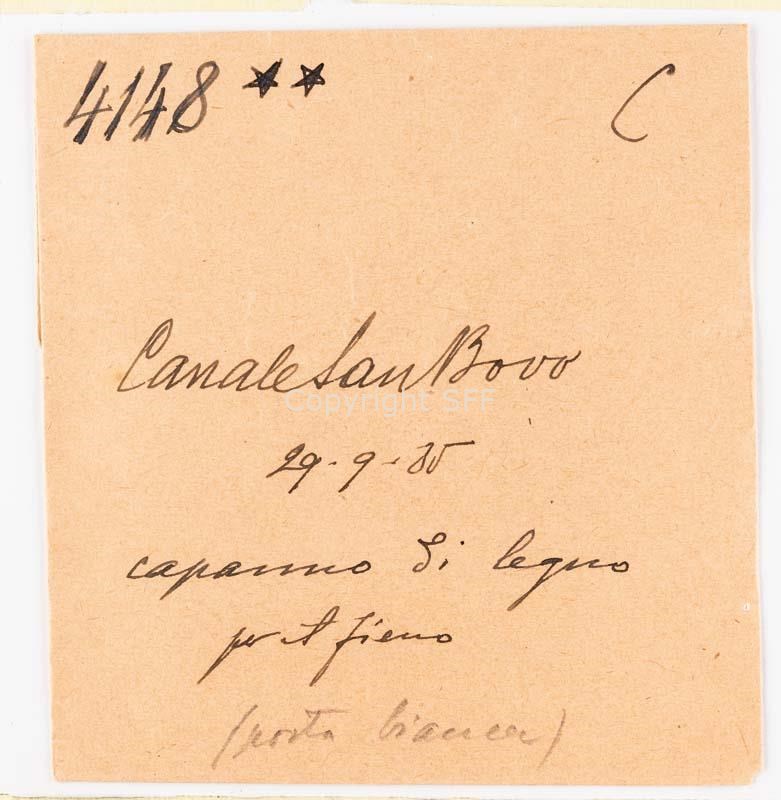 4148 ★★ C
Canale San Bovo
Copyright SFF
29-9-35
capanno di legno
per il fieno
(porta bianca)